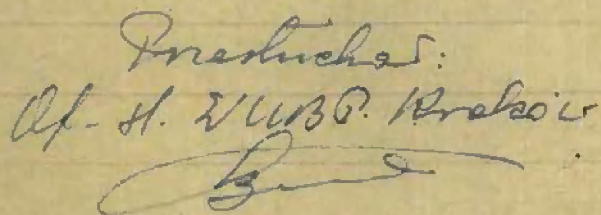 Przesłuchał:
Of. śl. WUBP. Kraków